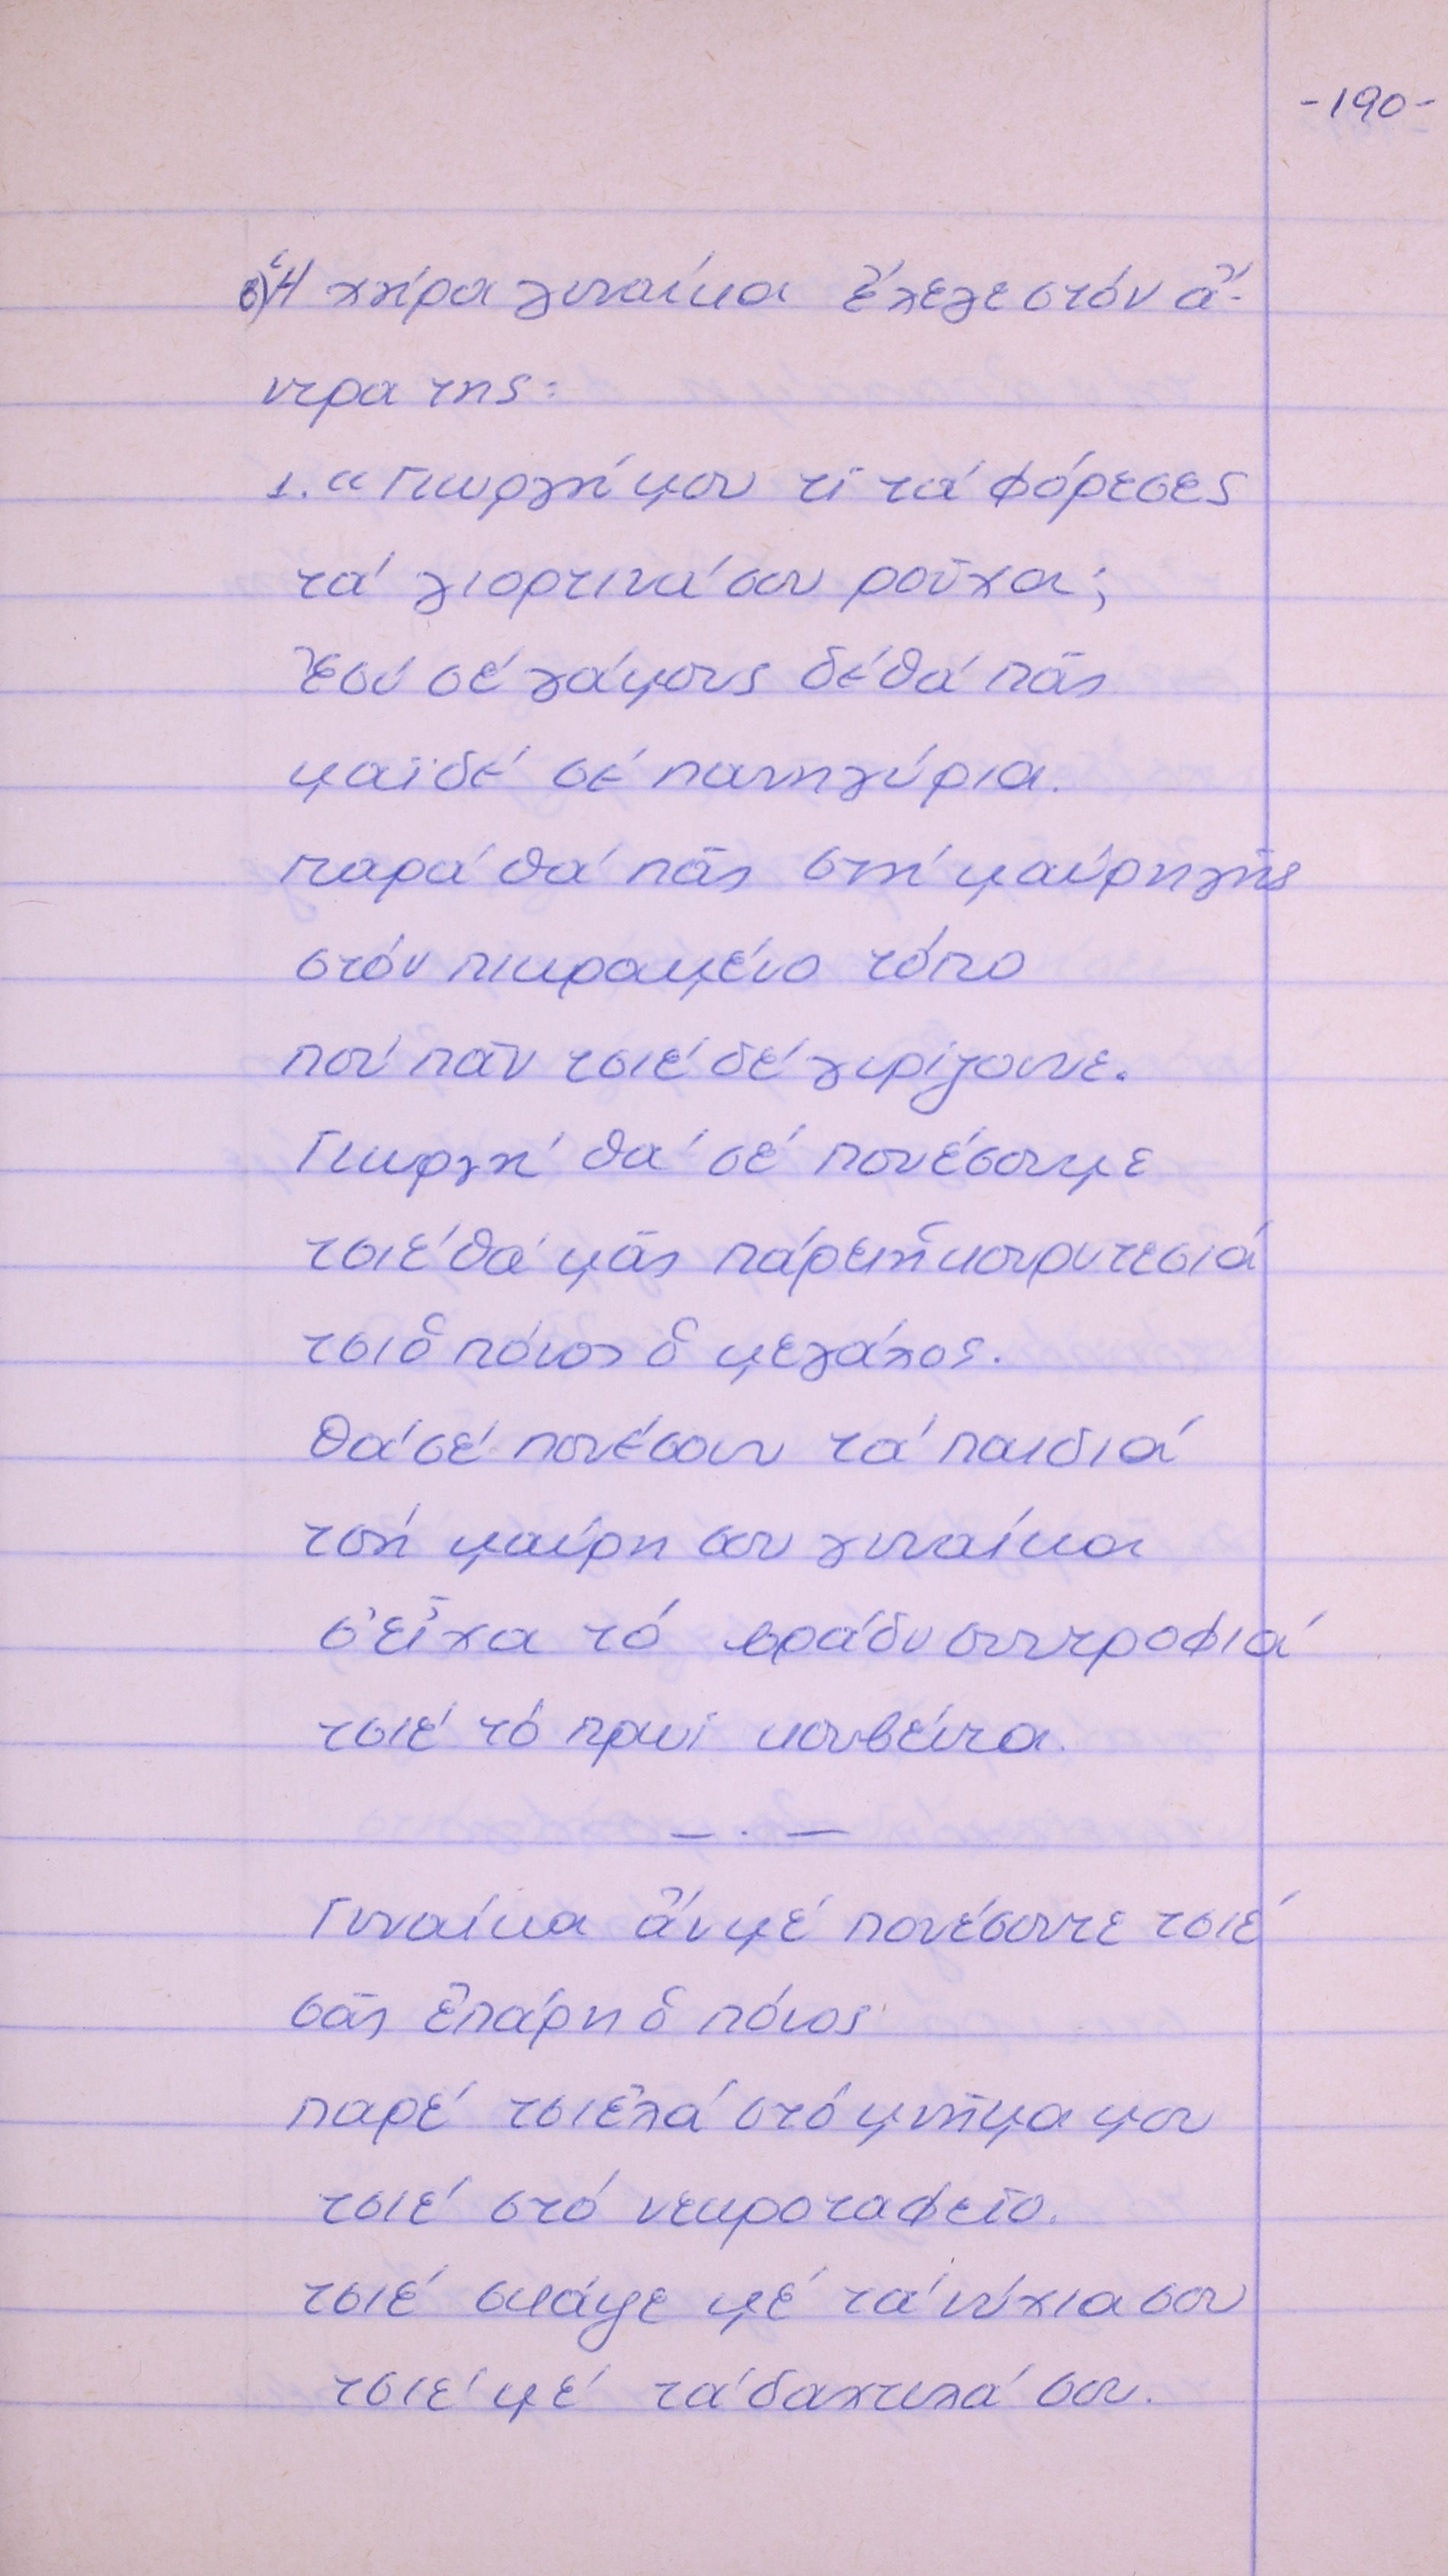 -190-
β) Ἡ χήρα γυναίκα ἔλεγε στόν ἄ-
ντρα της:
1. «Γιωργή μου τί τά φόρεσες
τά γιορτινά σου ροῦχα;
Ἐσύ σέ γάμους δέ θά πᾶς
μαϊδέ σέ πανηγύρια.
παρά θά πᾶς στή μαύρη γῆς
στόν πικραμένο τόπο
πού πᾶν τσιέ δέ γυρίζουνε.
Γιωργή θά σέ πονέσουμε
τσιέ θά μᾶς πάρει ἡ κουρντεσιά
τσι ὁ πόνος ὁ μεγάλος.
Θά σέ πονέσουν τά παιδιά
τσή μαύρη σου γυναίκα
σ' εἶχα τό βράδυ συντροφιά
τσιέ τό πρωί κουβέντα.
— . —
Γυναίκα ἄν μέ πονέσουτε τσιέ
σᾶς ἐπάρη ὁ πόνος
παρέ τσι ἐλά στό μνῆμα μου
τσιέ στό νεκροταφεῖο.
τσιέ σκάψε μέ τά νύχια σου
τσιέ μέ τά δαχτυλά σου.